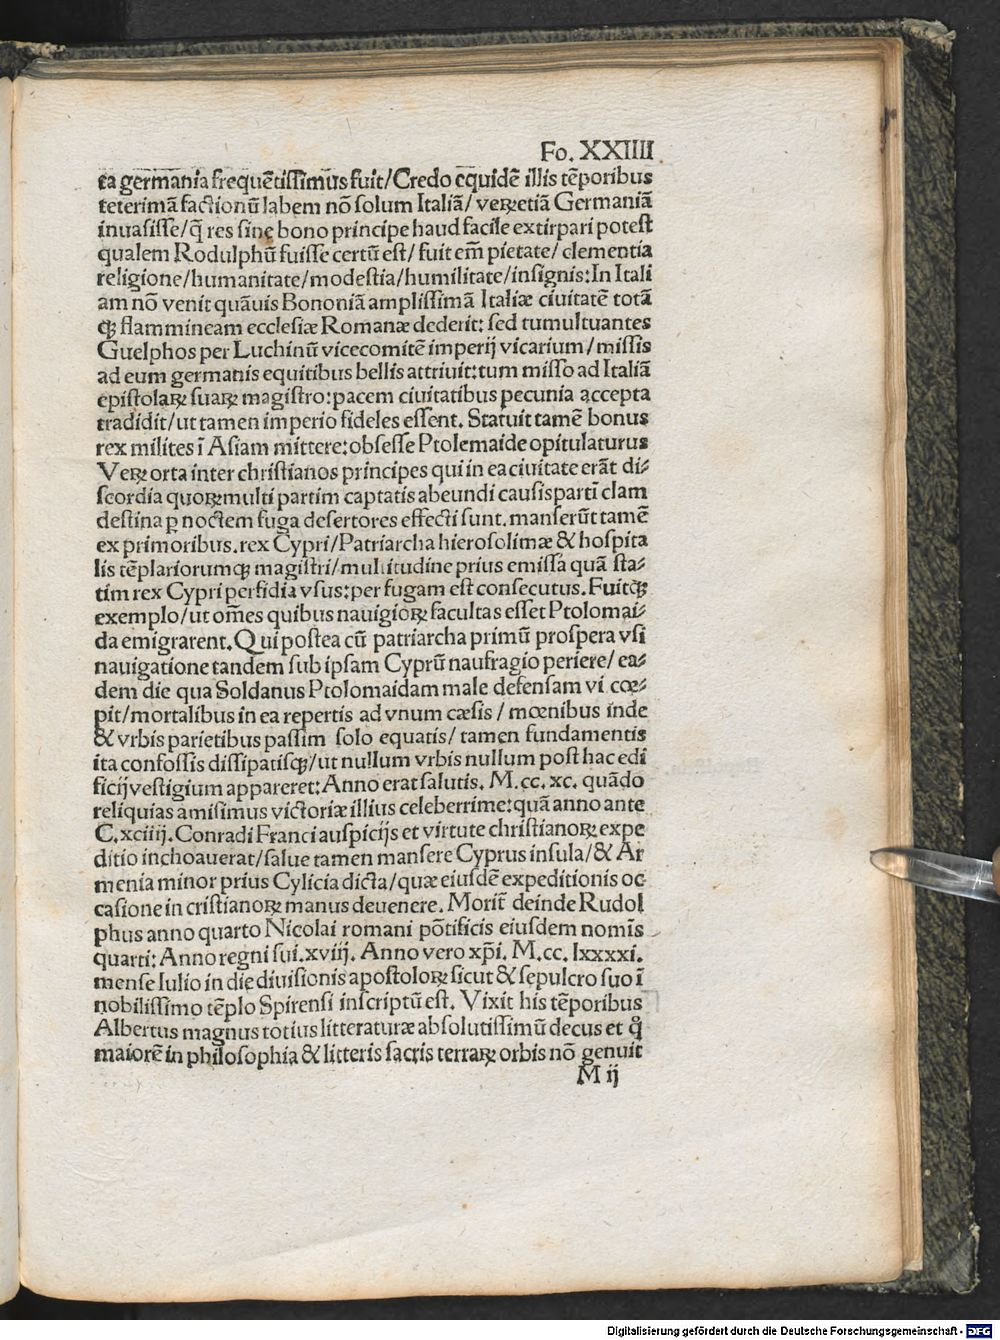 Fo. XXIIII
ta germania frequẽtissimus fuit/Credo eq̃uidẽ illis tẽporibus
teterimã factionũ labem nõ solum Italiã/ veꝝetiã Germaniã
inuasisse/q̃ res sine bono principe haud facile extirpari potest
qualem Rodulphũ fuisse certũ est/ fuit em̃ pietate/ clementia
religione/humanitate/modestia/humilitate/insignis:In Itali
am nõ venit quãuis Bononiã amplissimã Italiæ ciuitatẽ totã
qꝫ flammineam ecclesiæ Romanæ dederit: sed tumultuantes
Guelphos per Luchinũ vicecomitẽ imperij vicarium/ missis
ad eum germanis equitibus bellis attriuit:tum misso ad Italiã
epistolaꝝ suaꝝ magistro:pacem ciuitatibus pecunia accepta
tradidit/ut tamen imperio fideles essent. Statuit tamẽ bonus
rex milites ĩ Asiam mittere:obsesse Ptolemaide opitulaturus
Veꝝ orta inter christianos principes qui in ea ciuitate erãt di⸗
scordia quoꝝ multi partim captatis abeundi causis partĩ clam
destina ꝑ noctem fuga desertores effecti sunt. manserũt tamẽ
ex primoribus.rex Cypri/Patriarcha hierosolimæ & hospita
lis tẽplariorumqꝫ magistri/multitudine prius emissa quã sta⸗
tim rex Cypri perfidia vsus:per fugam est consecutus. Fuitqꝫ
exemplo/ut om̃es quibus nauigioꝝ facultas esset Ptolomai⸗
da emigrarent.Qui postea cũ patriarcha primũ prospera vsi
nauigatione tandem sub ipsam Cyprũ naufragio periere/ ea⸗
dem die qua Soldanus Ptolomaidam male defensam vi cœ⸗
pit/mortalibus in ea repertis ad vnum cæsis / mœnibus inde
& vrbis parietibus passim solo equatis/ tamen fundamentis
ita confossis dissipatisqꝫ/ut nullum vrbis nullum post hac edi
ficij vestigium appareret:Anno erat salutis. M.cc.xc. quãdo
reliquias amisimus victoriæ illius celeberrime:quã anno ante
C.xciiij.Conradi Franci auspicijs et virtute christianoꝝ expe
ditio inchoauerat/salue tamen mansere Cyprus insula/& Ar
menia minor prius Cylicia dicta/quæ eiusdẽ expeditionis oc
casione in cristianoꝝ manus deuenere. Morit̃ deinde Rudol
phus anno quarto Nicolai romani põtificis eiusdem nomĩs
quarti: Anno regni sui.xviij. Anno vero xp̃i. M.cc.lxxxxi.
mense Iulio in die diuisionis apostoloꝝ sicut & sepulcro suo ĩ
nobilissimo tẽplo Spirensi inscriptũ est. Vixit his tẽporibus
Albertus magnus totius litteraturæ absolutissimũ decus et q̊
maiorẽ in philosophia & litteris sacris terraꝝ orbis nõ genuit
M ij
Digitalisierung gefördert durch die Deutsche Forschungsgemeinschaft - DFG